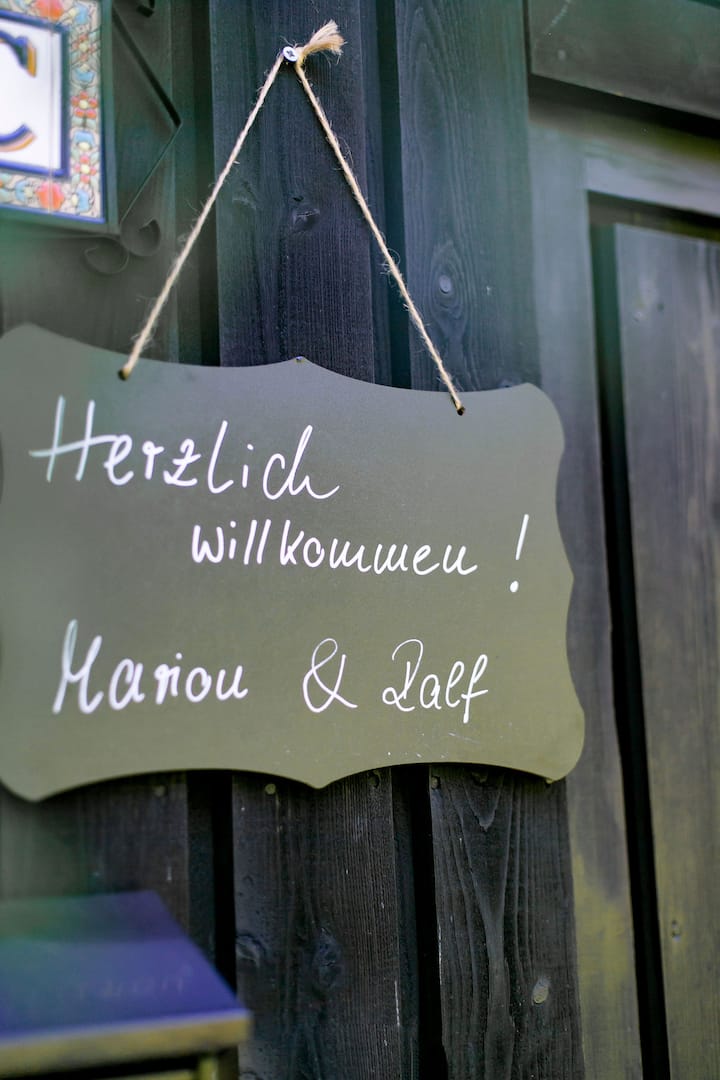 C
Herzlich
willkommen!
Marion & Ralf